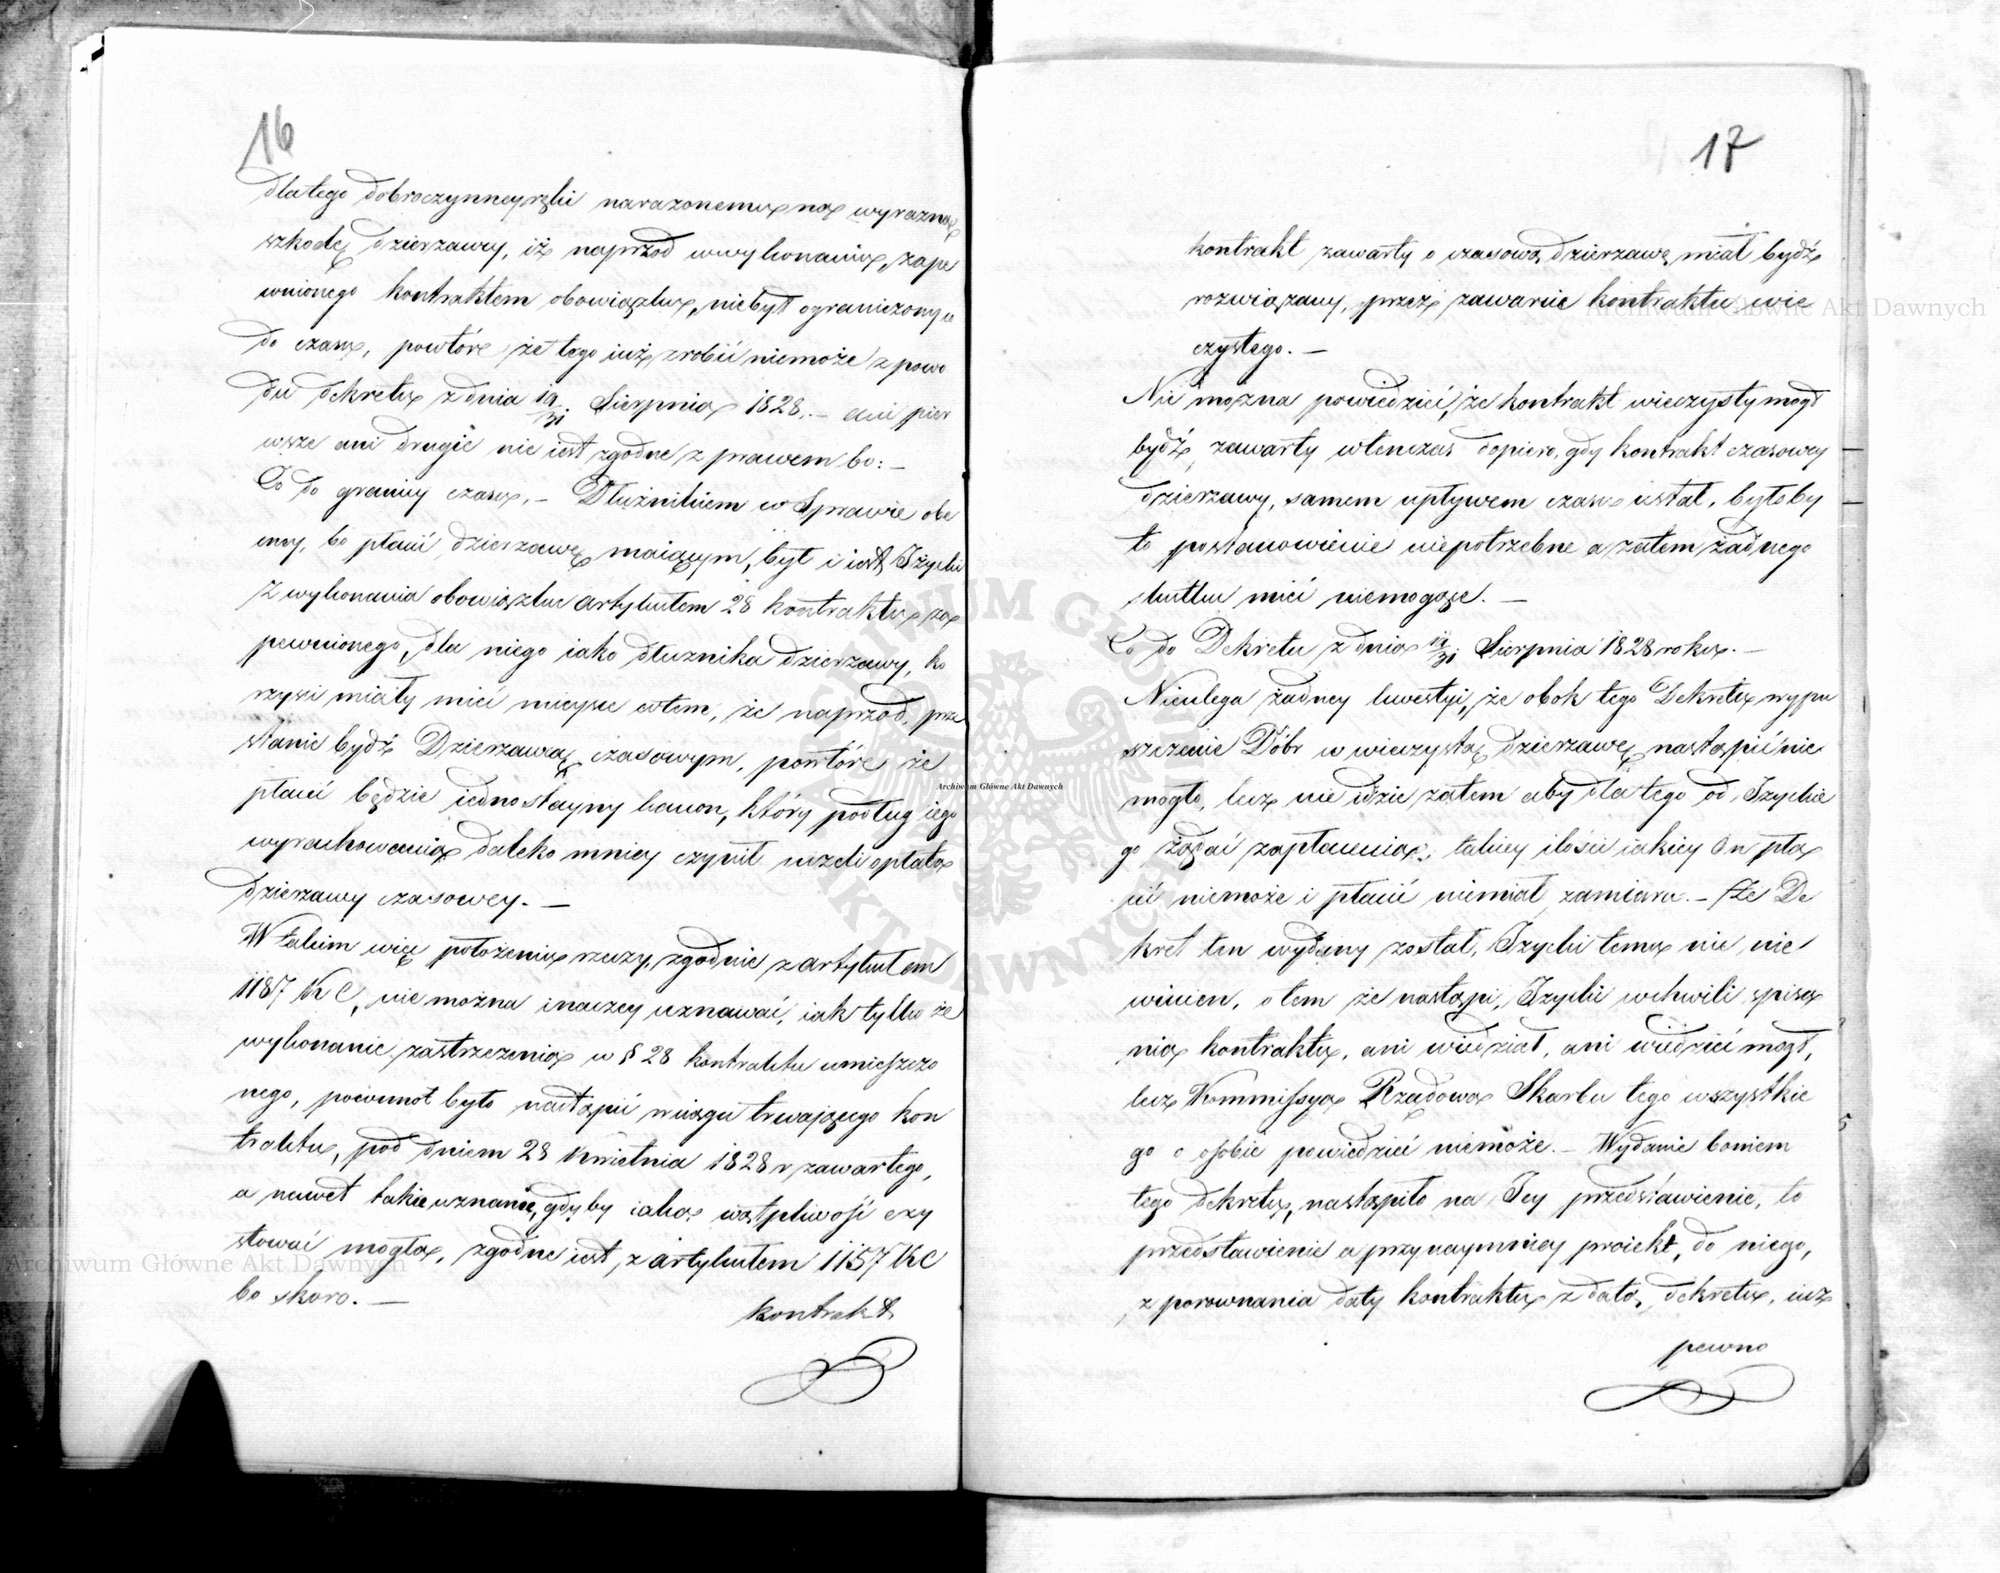 16
dlatego dobroczynney ręki narazonemu na wyrazną
szkodę dzierzawy, iż naprzod wwykonaniu, zape
wnionego kontraktem obowiązku, niebył ograniczony u
do czasu, powtóre że tego iuż zrobić niemoże z powo
du dekretu z dnia 19/31 Sierpnia 1828.– ani pier
wsze ani drugie nie iest zgodne z prawem bo:–
Co do granicy czasu.– Dłużnikiem w Sprawie obe
cney, bo płacić dzierzawę maiącym, był i iest Iżycki
Z wykonania obowiązku artykułem 28 kontraktu za
pewnionego, dla niego iako dłuznika dzierzawy, ko
rzyści miały mieć mieysce wtem, że naprzod prze
stanie bydź Dzierzawcą czasowym, powtóre że
płacić będzie iednostayny kanon, który podług iego
wyrachowania daleko mniey czynił niżeli opłata
dzierzawy czasowey.–
W takim więc położeniu rzeczy, zgodnie z artykułem
1187 KC, nie można inaczey uznawać, iak tylko że
wykonanie zastrzeżenia w § 28 kontraktu umieszczo
nego, powinno było nastąpić wciągu trwaiącego kon
traktu, pod dniem 28 Kwietnia 1828 r zawartego,
a nawet takie uznanie, gdyby iaka wątpliwość exy
stować mogła, zgodne iest, z artykułem 1157 KC
bo skoro.–
kontrakt
17
kontrakt zawarty o czasową dzierzawę, miał bydź
rozwiązany, przez zawarcie kontraktu wie
czystego.–
Nie można powiedzieć, że kontrakt wieczysty mógł
bydź zawarty wtenczas dopiero, gdy kontrakt czasowey
dzierzawy, samem upływem czasu ustał, byłoby
to postanowienie niepotrzebne a zatem żadnego
skutku mieć niemogące.–
Co do Dekretu z dnia 19/31 Sierpnia 1828 roku.–
Nieulega żadney kwestyi, że obok tego Dekretu wypu
szczenie Dóbr w wieczystą dzierzawę, nastąpić nie
mogło, lecz nie idzie zatem aby dla tego od Iżyckie
go żądać zapłacenia, takiey ilości iakiey On pła
cić niemoże i płacić niemiał zamiaru.– Że De
kret ten wydany został, Iżycki temu nic nie
winien, o tem że nastąpi, Iżycki wchwili spisa
nia kontraktu, ani wiedział, ani wiedzieć mogł,
lecz Kommissya Rządowa Skarbu tego wszystkie
go o sobie powiedzieć niemoże.– Wydanie bowiem
tego dekretu, nastąpiło na Jey przedstawienie, to
przedstawienie a przynaymniey proiekt, do niego,
z porownania daty kontraktu z datą, dekretu, iuż
pewno
Archiwum Główne Akt Dawnych
Archiwum Główne Akt Dawnych
Archiwum Główne Akt Dawnych
ARCHIWUM GŁÓWNE AKT DAWNYCH